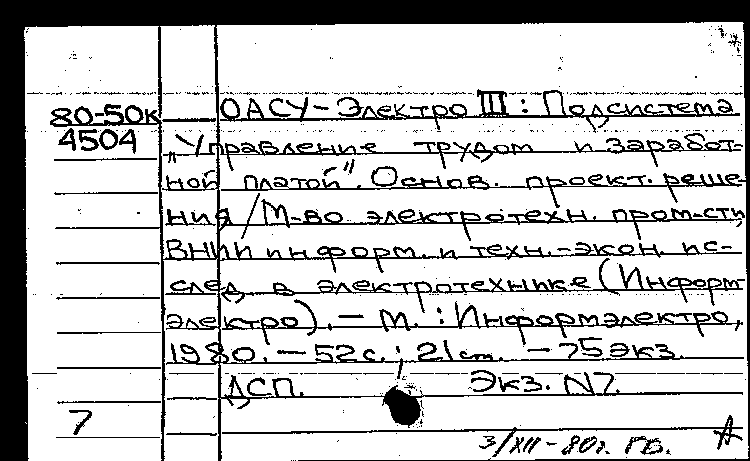 80-50к ОАСУ-Электро III: Подсистема
4504 „Управление трудом и заработ-
ной платой". Основ. проект. реше-
ния / М-во электротехн. пром-сти,
ВНИИ информ. и техн.-экон. ис-
след. в электротехнике (Информ-
электро). – М.: Информэлектро,
1980. – 52 с.; 21 ст. – 75 экз.
ДСП. Экз. N7.
7
3/XII-80г. ГБ. А